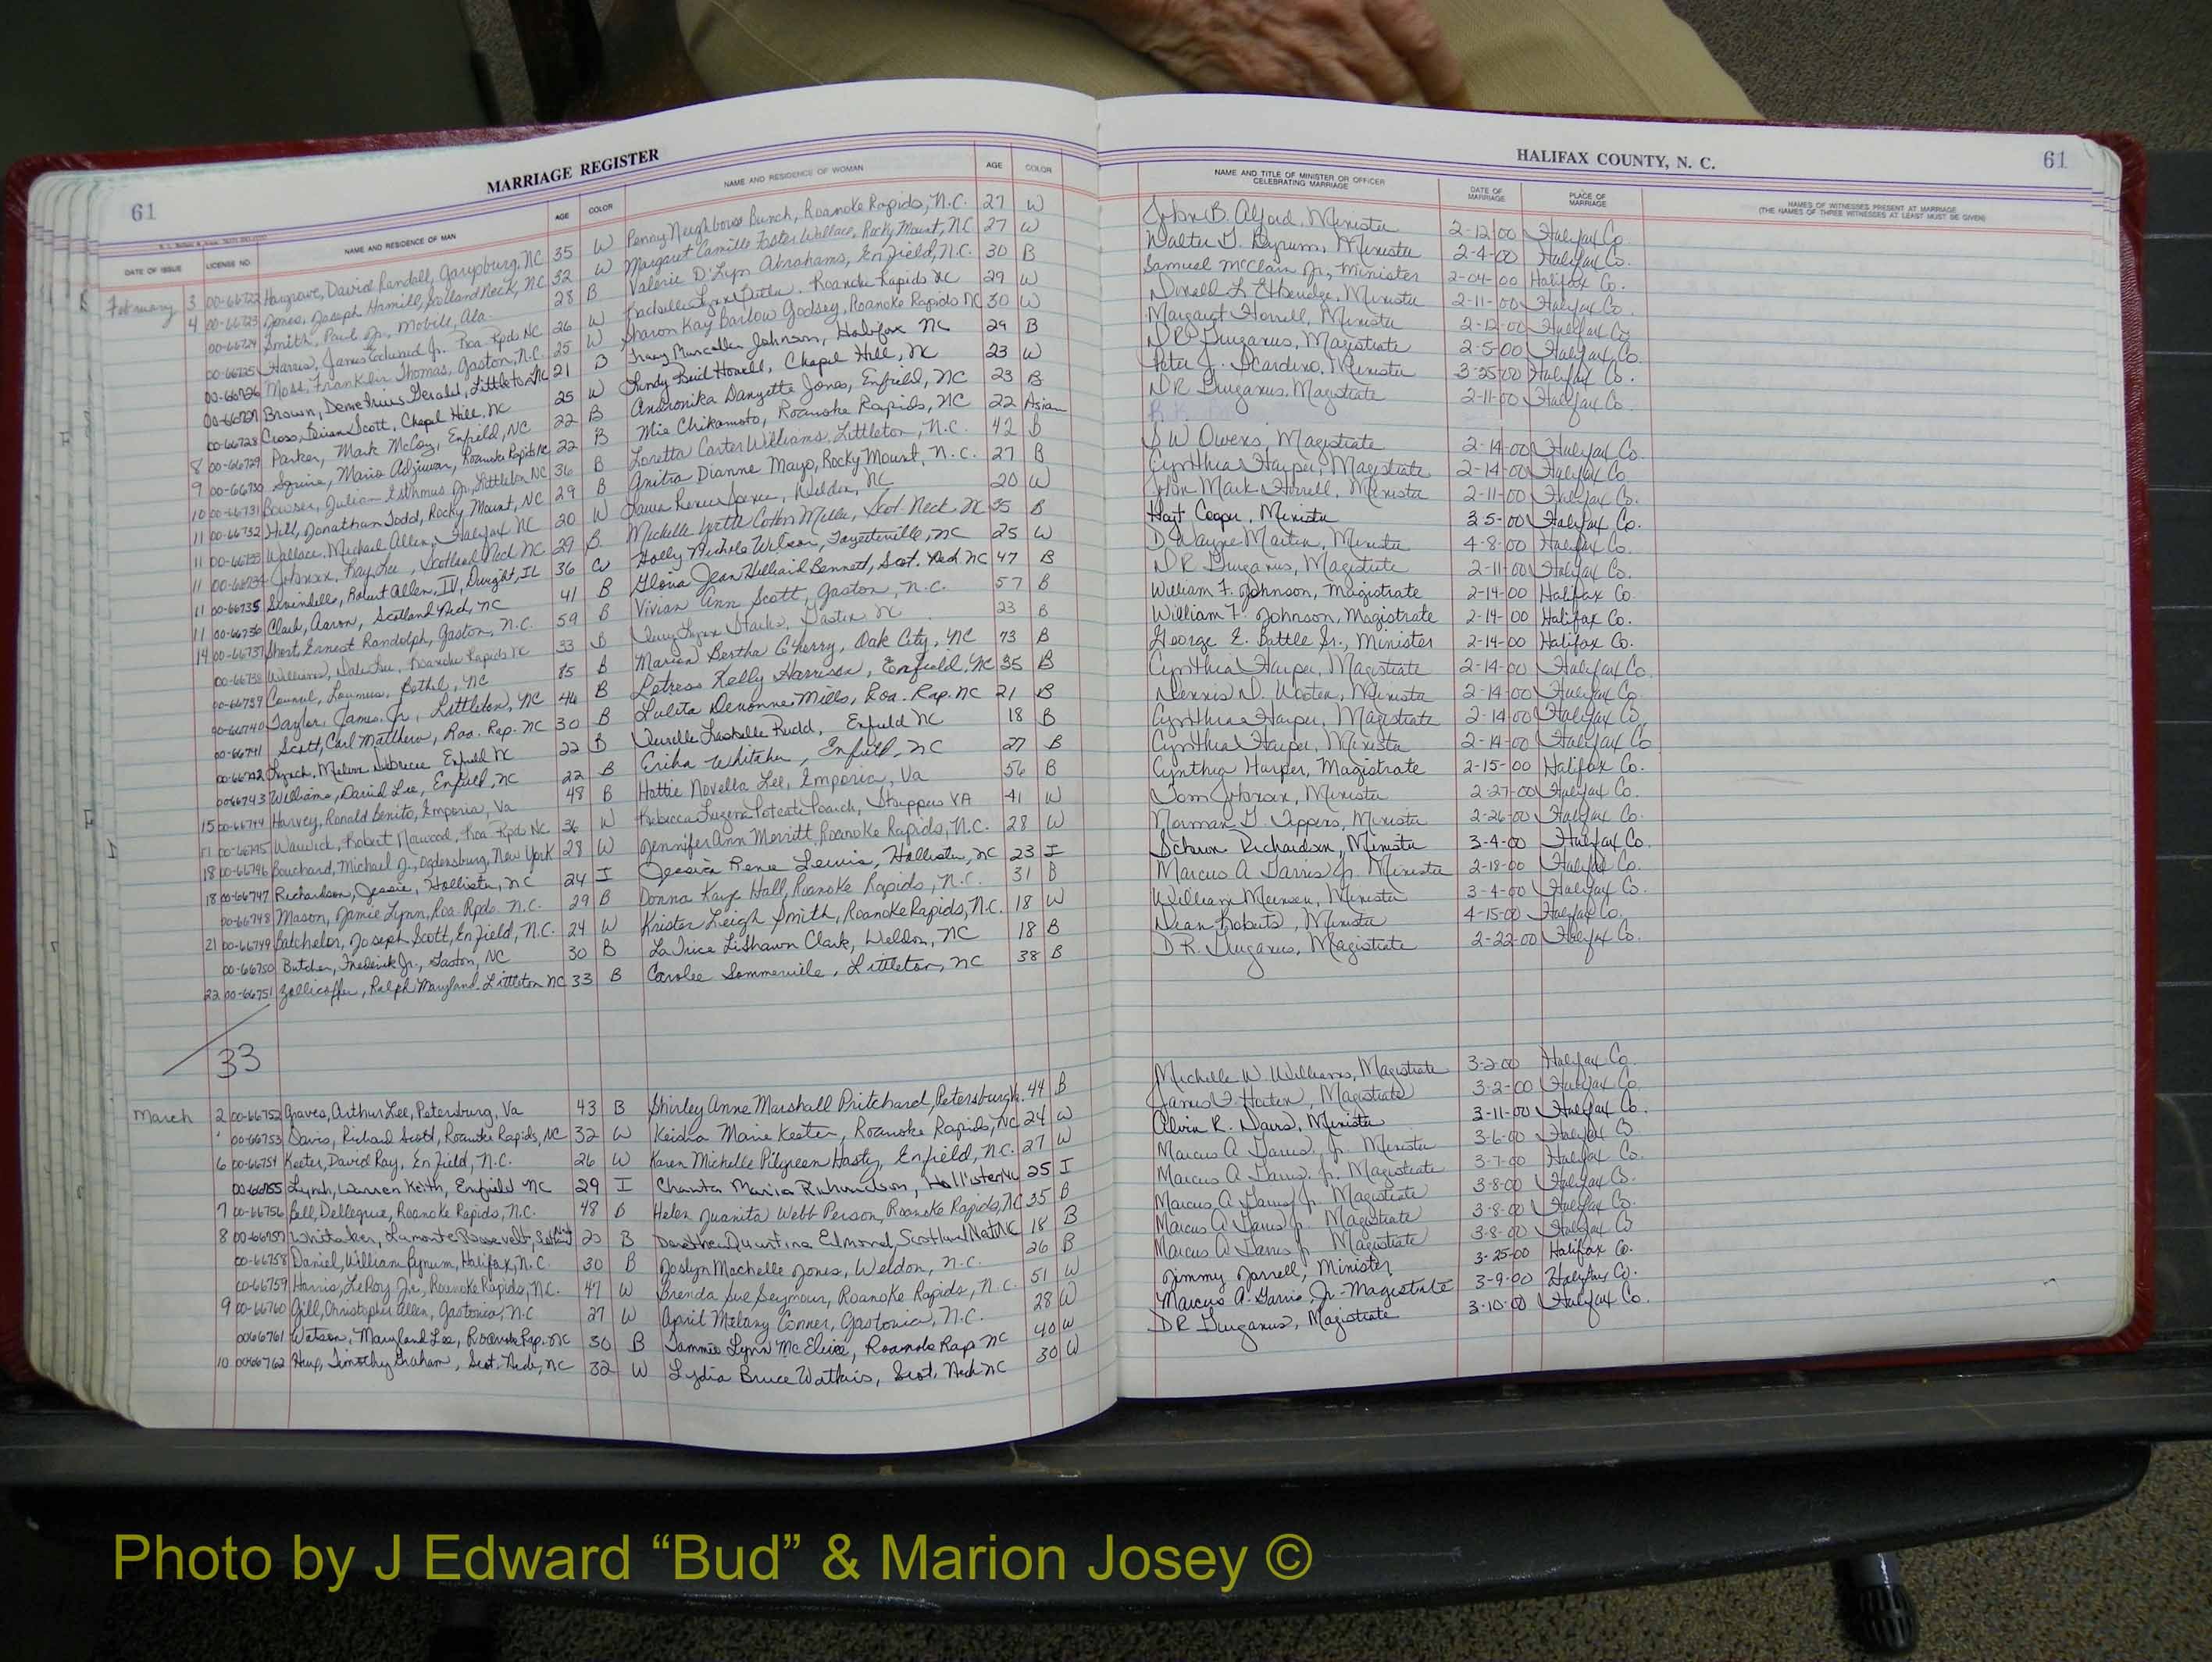 MARRIAGE REGISTER
61
DATE OF ISSUE LICENSE NO. NAME AND RESIDENCE OF MAN AGE COLOR NAME AND RESIDENCE OF WOMAN AGE COLOR
February 3 00-66722 Hargrove, David Randall, Garysburg, NC 35 W Penny Neighbours Bunch, Roanoke Rapids, N.C. 27 W
4 00-66723 Jones, Joseph Hamill, Scotland Neck, NC 32 W Margaret Camille Foster Wallace, Rocky Mount, NC 27 W
00-66724 Smith, Paul Jr., Mobile, Ala. 28 B Valerie D'Lyn Abrahams, Enfield, N.C. 30 B
00-66725 Harris, James Edward Jr. Roa. Rpds NC 26 W Rachelle Lynn Roanoke Rapids NC 29 W
00-66726 Moss, Franklin Thomas, Gaston, N.C. 25 W Sharon Kay Barlow Godsey, Roanoke Rapids NC 30 W
00-66727 Brown, Demetrius Gerald, Littleton NC 21 B Tracy Johnson, Halifax NC 29 B
00-66728 Cross, Brian Scott, Chapel Hill, NC 25 W Lindy Reid Howell, Chapel Hill, NC 23 W
8 00-66729 Parker, Mark McCoy, Enfield, NC 22 B Andronika Danyette Jones, Enfield, NC 23 B
9 00-66730 Squire, Mario Roanoke Rapids NC 22 B Mie Chikamoto, Roanoke Rapids, NC 22 Asian
10 00-66731 Bowser, Julian Isthmus Jr, Littleton NC 36 B Loretta Carter Williams, Littleton, N.C. 42 B
11 00-66732 Hill, Jonathan Todd, Rocky Mount, NC 29 B Anitra Dianne Mayo, Rocky Mount, N.C. 27 B
11 00-66733 Wallace, Michael Allen, Halifax NC 20 W Laura Renee Weldon, NC 20 W
11 00-66734 Johnson, Ray Lee, Scotland Neck NC 29 B Michelle Yvette Cotton Mills, Scot. Neck NC 35 B
11 00-66735 Swindells, Robert Allen, IV, Dwight, IL 36 W Holly Nichole Wilson, Fayetteville, NC 25 W
11 00-66736 Clark, Aaron, Scotland Neck, NC 41 B Gloria Jean Hilliard Bennett, Scot. Neck NC 47 B
14 00-66737 Short, Ernest Randolph, Gaston, N.C. 59 B Vivian Ann Scott, Gaston N.C. 57 B
00-66738 Williams, Dale Lee, Roanoke Rapids NC 33 B Lynn Starks, Gaston NC 23 B
00-66739 Council, Lounius, Bethel, NC 85 B Marion Bertha Cherry, Oak City, NC 73 B
00-66740 Taylor, James Jr, Littleton, NC 44 B Letress Kelly Harrison, Enfield, NC 35 B
00-66741 Scott, Carl Matthew, Roa. Rap. NC 30 B Lulita Devonne Mills, Roa. Rap. NC 21 B
00-66742 Lynch, Enfield NC 22 B Lashelle Rudd, Enfield NC 18 B
00-66743 Williams, David Lee, Enfield, NC 22 B Erika Whitaker, Enfield, NC 27 B
15 00-66744 Harvey, Ronald Benito, Emporia, Va 48 B Hattie Novella Lee, Emporia, Va 56 B
17 00-66745 Warwick, Robert Norwood, Roa. Rpds NC 36 W Rebecca Eugene Poteate Roach, Skippers VA 41 W
18 00-66746 Bouchard, Michael J., Ogdensburg, New York 28 W Jennifer Ann Merritt, Roanoke Rapids, N.C. 28 W
18 00-66747 Richardson, Jessie, Hollister, NC 24 I Jessica Rene Lewis, Hollister, NC 23 I
00-66748 Mason, Jamie Lynn, Roa. Rpds. N.C. 29 B Donna Kaye Hall, Roanoke Rapids, N.C. 31 B
21 00-66749 Batchelor, Joseph Scott, Enfield, N.C. 24 W Kristen Leigh Smith, Roanoke Rapids, N.C. 18 W
00-66750 Butcher, Frederick Jr., Gaston, NC 30 B LaTrice LiShawn Clark, Weldon, NC 18 B
22 00-66751 Zollicoffer, Ralph Maryland, Littleton NC 33 B Carolee Sommerville, Littleton, NC 38 B
33
March 2 00-66752 Graves, Arthur Lee, Petersburg, Va 43 B Shirley Anne Marshall Pritchard, Petersburg Va. 44 B
00-66753 Davis, Richard Scott, Roanoke Rapids, NC 32 W Keisha Marie Keeter, Roanoke Rapids, NC 24 W
6 00-66754 Keeter, David Ray, Enfield, N.C. 26 W Karen Michelle Pilgreen Hasty, Enfield, N.C. 27 W
00-66755 Lynch, Warren Keith, Enfield NC 29 I Chanta Maria Richardson, Hollister NC 25 I
7 00-66756 Bell, Dellegrise, Roanoke Rapids, N.C. 48 B Helen Juanita Webb Person, Roanoke Rapids, NC 35 B
8 00-66757 Whitaker, Lamonte Roosevelt, 20 B Quartina Edmond, Scotland Neck NC 18 B
00-66758 Daniel, William Bynum, Halifax, N.C. 30 B Joslyn Machelle Jones, Weldon, N.C. 26 B
00-66759 Harris, LeRoy Jr., Roanoke Rapids, N.C. 47 W Brenda Sue Seymour, Roanoke Rapids, N.C. 51 W
9 00-66760 Gill, Christopher Allen, Gastonia, N.C. 27 W April Melany Conner, Gastonia, N.C. 28 W
0066761 Watson, Maryland Lee, Roanoke Rap. NC 30 B Tammie Lynn McElvie, Roanoke Rap NC 40 W
10 0066762 Timothy Graham, Scot. Neck, NC 32 W Lydia Bruce Watkins, Scot. Neck NC 30 W
HALIFAX COUNTY, N. C.
61
NAME AND TITLE OF MINISTER OR OFFICER CELEBRATING MARRIAGE DATE OF MARRIAGE PLACE OF MARRIAGE NAMES OF WITNESSES PRESENT AT MARRIAGE (THE NAMES OF THREE WITNESSES AT LEAST MUST BE GIVEN)
John B. Alford, Minister 2-12-00 Halifax Co.
Walter G. Byrum, Minister 2-4-00 Halifax Co.
Samuel McClain Jr, Minister 2-04-00 Halifax Co.
Donald L. Etheridge, Minister 2-11-00 Halifax Co.
Margaret Horrell, Minister 2-12-00 Halifax Co
DR Gurganus, Magistrate 2-5-00 Halifax Co.
Peter J. Minister 3-25-00 Halifax Co.
DR Gurganus, Magistrate 2-11-00 Halifax Co.
S W Owens, Magistrate 2-14-00 Halifax Co.
Cynthia Harper, Magistrate 2-14-00 Halifax Co
John Mark Horrell, Minister 2-11-00 Halifax Co.
Hoyt Cooper, Minister 3 5-00 Halifax Co.
D. Wayne Martin, Minister 4-8-00 Halifax Co.
DR Gurganus, Magistrate 2-11-00 Halifax Co.
William F. Johnson, Magistrate 2-14-00 Halifax Co.
William F. Johnson, Magistrate 2-14-00 Halifax Co.
George E. Battle Sr., Minister 2-14-00 Halifax Co.
Cynthia Harper, Magistrate 2-14-00 Halifax Co.
Dennis D. Wooten, Minister 2-14-00 Halifax Co
Cynthia Harper, Magistrate 2-14-00 Halifax Co.
Cynthia Harper, Minister 2-14-00 Halifax Co
Cynthia Harper, Magistrate 2-15-00 Halifax Co.
Tom Johnson, Minister 2-27-00 Halifax Co.
Norman G. Tippens, Minister 2-26-00 Halifax Co.
Richardson, Minister 3-4-00 Halifax Co.
Marcus A Garris Jr. Minister 2-18-00 Halifax Co.
William Minister 3-4-00 Halifax Co.
Dean Roberts, Minister 4-15-00 Halifax Co.
D. R. Gurganus, Magistrate 2-22-00 Halifax Co.
Michelle W. Williams, Magistrate 3-2-00 Halifax Co
James Magistrate 3-2-00 Halifax Co
Alvin R. Davis, Minister 3-11-00 Halifax Co.
Marcus A Garris, Jr. Minister 3-6-00 Halifax Co
Marcus A Garris, Jr. Magistrate 3-7-00 Halifax Co.
Marcus A Garris Jr. Magistrate 3-8-00 Halifax Co.
Marcus A Garris Jr. Magistrate 3-8-00 Halifax Co.
Marcus A Garris Jr Magistrate 3-8-00 Halifax Co
Jimmy Jarrell, Minister 3-25-00 Halifax Co.
Marcus A. Garris, Jr - Magistrate 3-9-00 Halifax Co.
DR Gurganus, Magistrate 3-10-00 Halifax Co.
Photo by J Edward “Bud” & Marion Josey ©